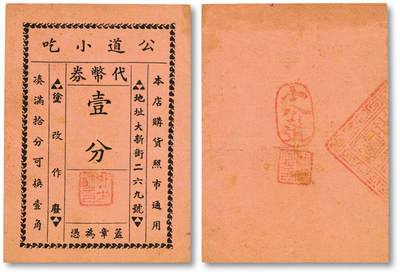 公道小吃
代幣券
壹分
本店購貨照市通用
地址大新街二六九號
塗改作廢
湊滿拾分可換壹角
蓋章為憑
小公道